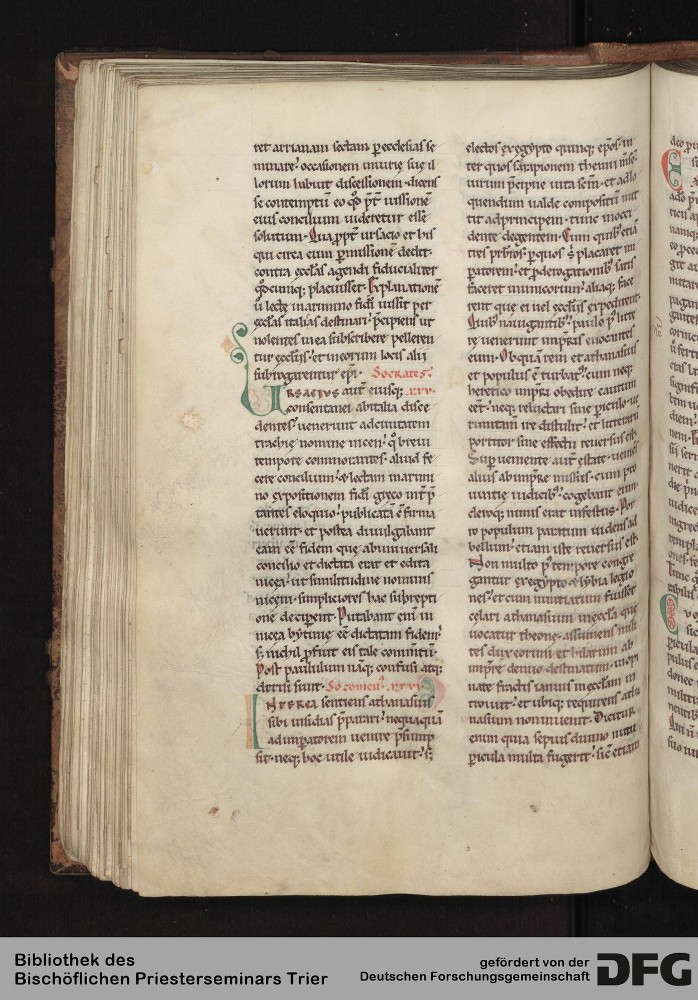 ret arrianam sectam ꝑ ecclesias se
minare· occasionem iniurię suę il
lorum habuit discessionem· dicens
se contemptū eo qđ p̄t iussionē
eius concilium uideretur esse
solutum· Qua ꝓpt̄ ursacio et his
qui circa eum ꝑmissionem dedit·
contra ęccl̄as agendi fiducialiter
qđcumq; placuisset· Explanationē
ū lectę in arimino fidei iussit per
ęccl̄as italias destinari· p̄cipiens ut
nolentes in ea subscribere pelleren
tur ęccl̄iis· et in eorum locis alii
subrogarentur ep̄i· Socrates·
URSACIUS aut̄ eiusq; .xxv.
consentanei ab italia disce
dentes· uenerunt ad ciuitatem
trachię nomine nicen· q̇ breui
tempore commorantes· aliud fe
cere concilium· & lectam in arimi
no expositionem fidei greco int̄p̄
tantes eloquio· publicatā c̄firma
uerunt· et postea diuulgabant
eam eē fidem quę ab uniuersali
concilio et dictata erat et edita
nicea· ut similitudine nominis
niceni· simpliciores hac subrepti
one deciperent· Putabant enī in
nicea bytinię eē dictatam fidem·
s; nichil ꝓfuit eis tale commtū·
Post paululum nāq; confusi atq;
derisi sunt· Sozomenꝰ· .xxvi.
INTEREA sentiens athanasius
sibi insidias p̄parari· nequaquā
ad imperatorem uenire p̄sump
sit· neq; hoc utile iudicauit· s;
electos ex egypto quinq; ep̄os· in
ter quos sarapionem
uirum p̄cipue uita sc̄m· et ad lo
quendum ualde compositū mit
tit ad principem· tunc in occi
dente degentem· Cum quibꝰ etiā
tres pr̄bros· ꝑ quos & placaret im
ꝑatorem· et ꝓ derogationibꝰ satis
faceret inimicorum· aliaq; face
rent que ei uel ęccl̄iis expedirent·
Quibꝰ nauigantibꝰ· paulo p̄ litte
rę uenerunt imp̄ris euocantes
eum· Ob quā rem et athanasius
et populus ē turbatꝰ· cum neq;
heretico imp̄ri obedire cautum
eēt· neq; reluctari sine ꝑiculo· ue
rumtam̄ ire distulit· et litterarū
portitor sine effectu reuersus est·
Suꝑueniente aut̄ estate· uenit
alius ab imp̄re missus· cum pro
uintię iudicibꝰ· cogebant eum·
cleroq; nimis erat infestus· Por
ro populum paratum uidens ad
bellum· etiam iste reuersus est·
Non multo p̄ tempore congre
gantur ex egypto & lybia legio
nes· et cum nuntiatum fuisset
celari athanasium in ęccl̄a que
uocatur theone· assumens mili
tes dux eorum et hilarium ab
imp̄re denuo destinatum· inopi
nate fractis ianuis in ęccl̄iam in
troiuit· et ubiq; requirens atha
nasium non inuenit· Dicitur
enim quia sepius diuino nutu
ꝑicula multa fugerit· sic etiam
Bibliothek des
Bischöflichen Priesterseminars Trier
gefördert von der
Deutschen Forschungsgemeinschaft
DFG